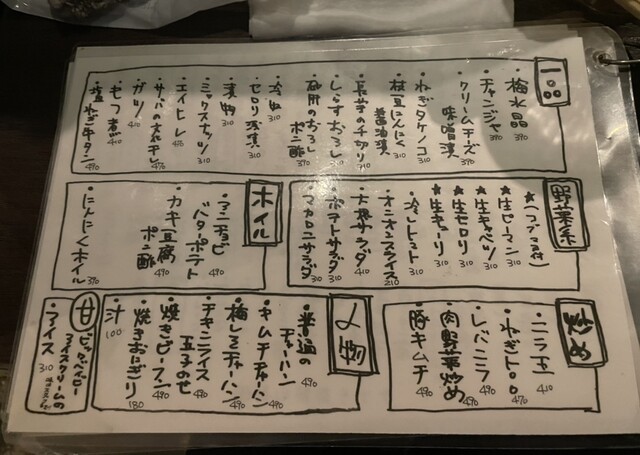 一品
・梅水晶 390
・チャンジャ 390
・クリームチーズ味噌漬 310
・ねぎタケノコ 310
・枝豆にんにく醤油漬 310
・長芋の千切り 310
・しらすおろし 310
・砂肝のおろしポン酢 310
・冷奴 310
・セロリ浅漬 310
・漬物 310
・ミックスナッツ 310
・エイヒレ 410
・サバの太丸干し 490
・ガツ 410
・もつ煮 410
・塩ねぎ牛タン 490
野菜系
(つブマヨ付)
★生ピーマン 310
★生キャベツ 310
★生セロリ 310
★生キューリ 310
・冷しトマト 310
・オニオンスライス 210
・大根サラダ 410
・ポテトサラダ 310
・マカロニサラダ 310
ホイル
・アンチョビバタポテト 490
・カキ豆腐ポン酢 490
・にんにくホイル 390
炒め
・ニラ玉 410
・ねぎトロロ 470
・レバニラ 490
・肉野菜炒め 490
・豚キムチ 490
〆物
・普通のチャーハン 490
・キムチチャーハン 490
・梅しそチャーハン 490
・チキンライス玉子のせ 490
・焼きビーフン 490
・焼きおにぎり 180
・汁 100
甘
ビックベイビーアイスクリームの
・アイス 310